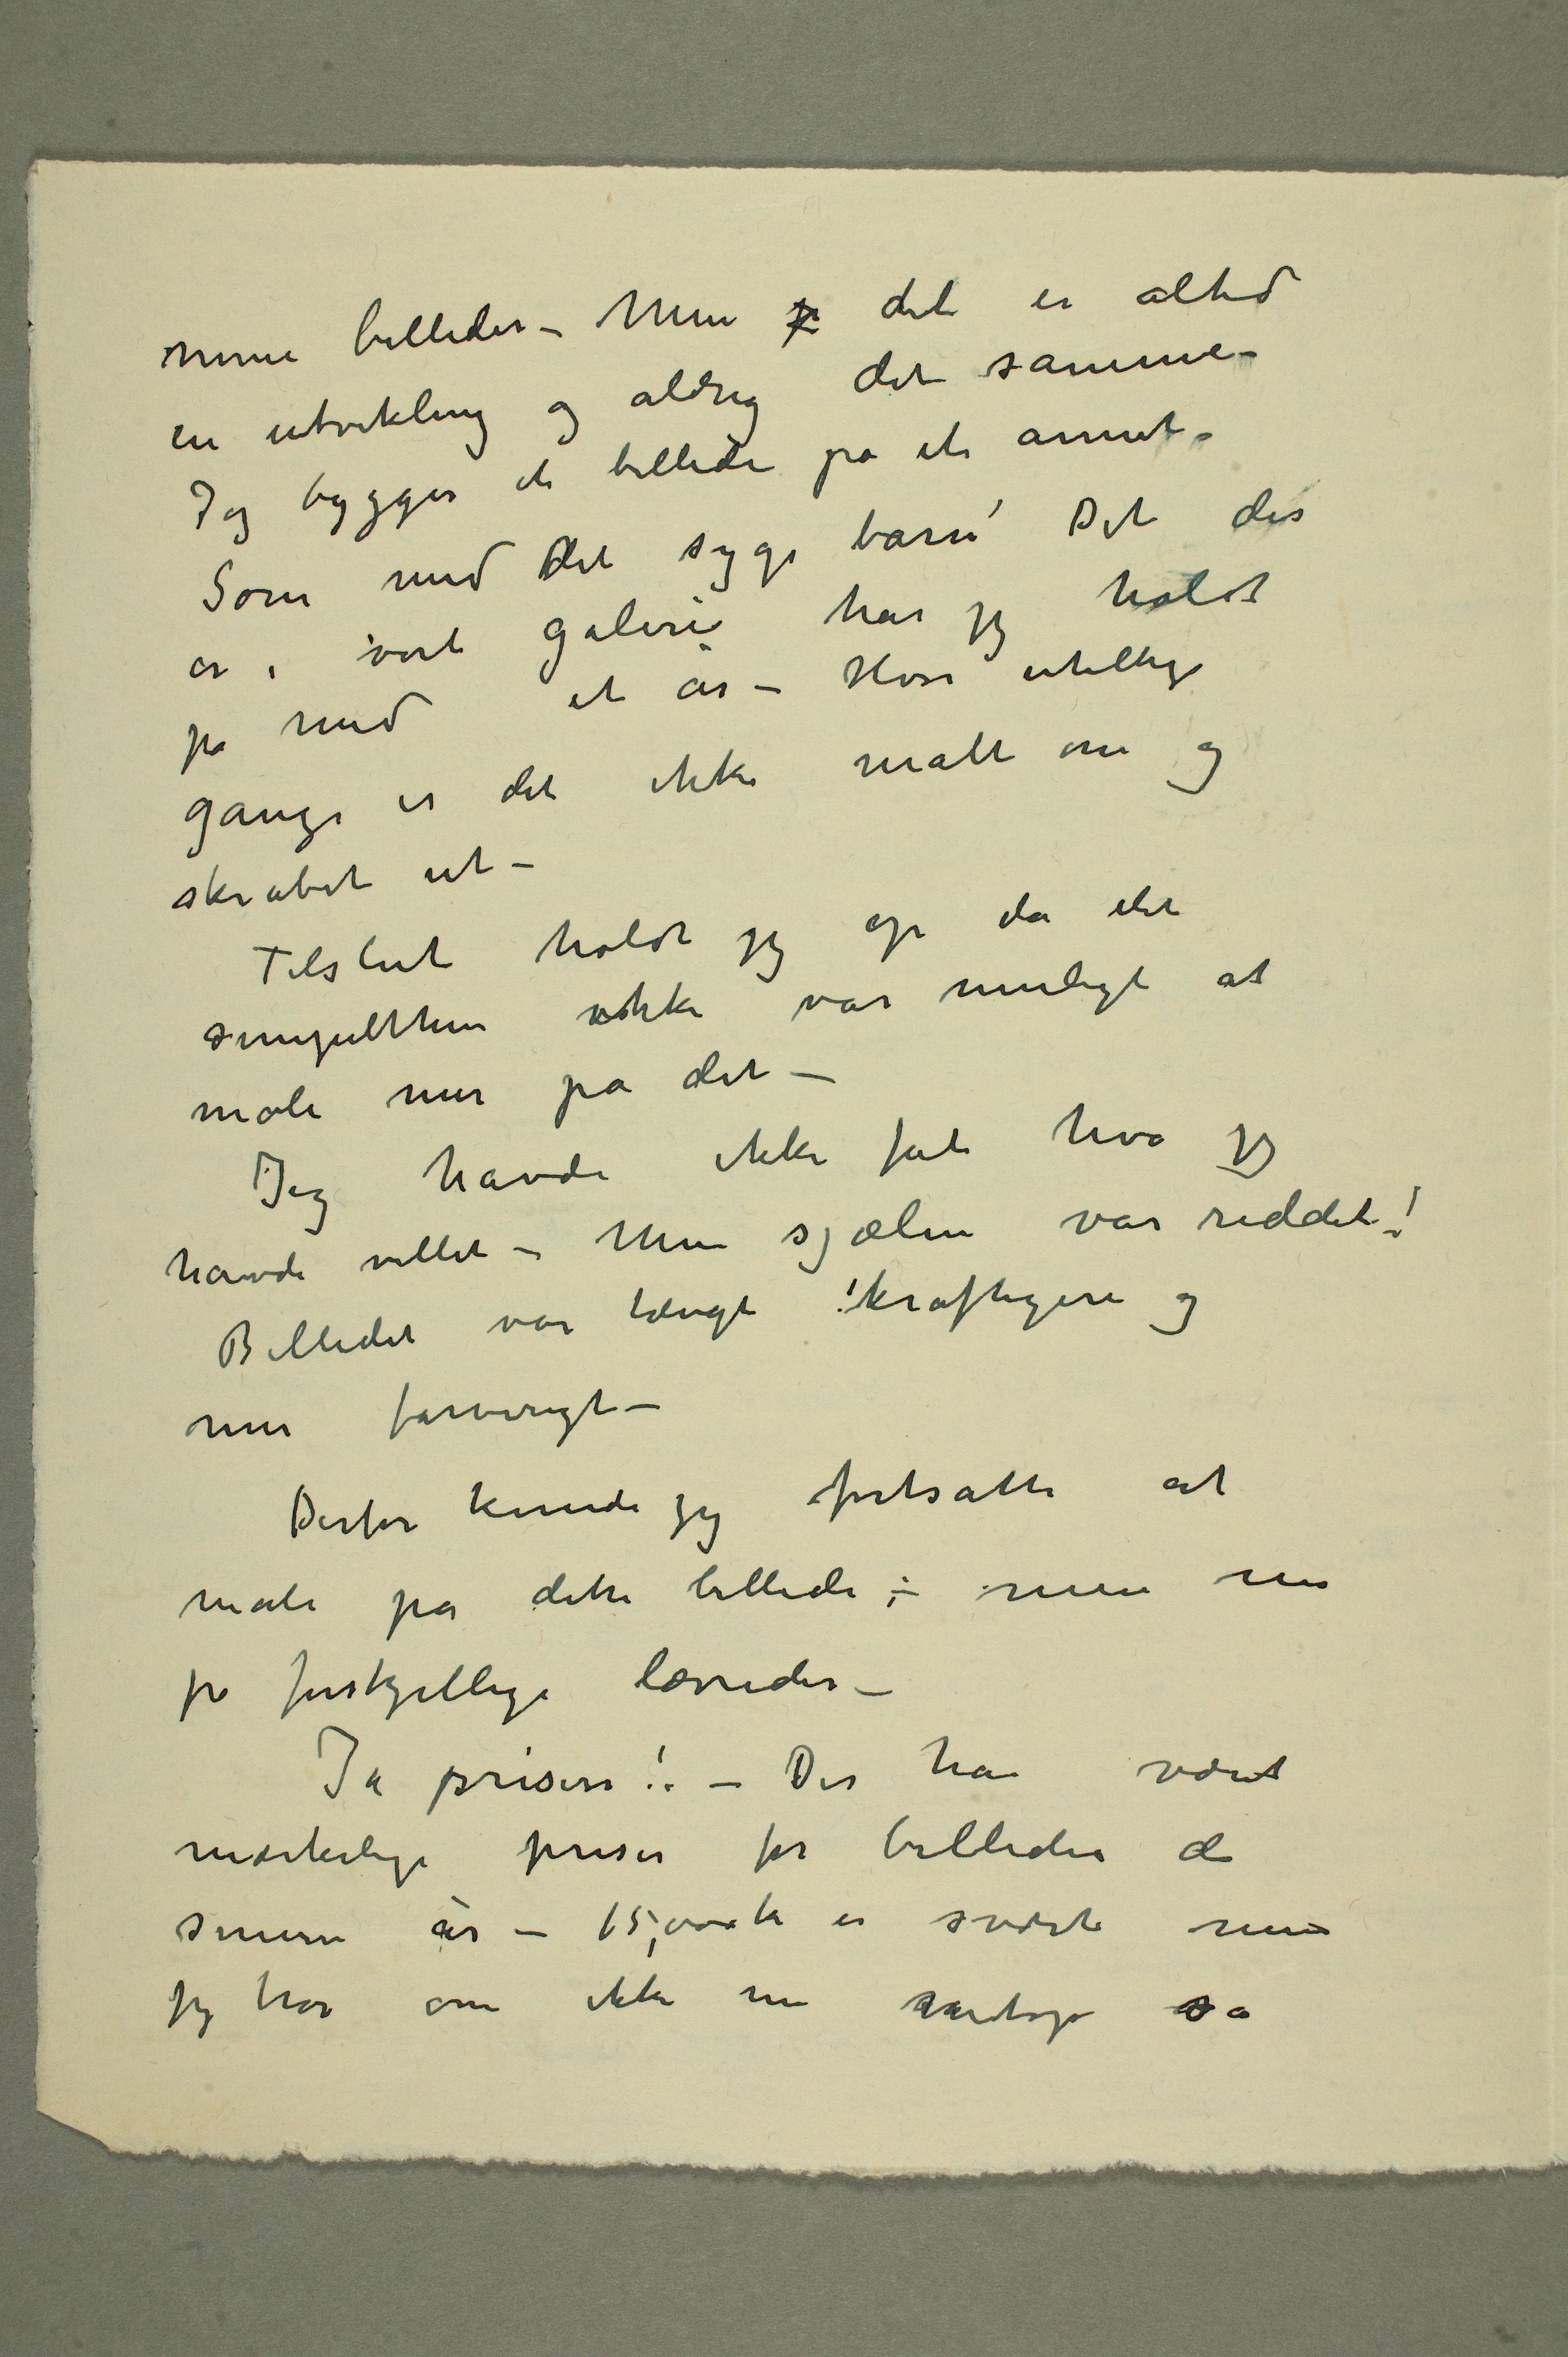 mine billeder – Men det er altid
en utvikling og aldrig det samme –
Jeg bygger et billede på et annet.
Som med det syge barn! Det der
er i vort galeri har jeg holdt
på med et år – Hvor utellige
gange er det ikke malt om og
skrabet ut –
Tilslut holdt jeg op da det
simpelthen ikke var muligt at
male mer på det –
Jeg havde ikke fåt hva jeg
havde villet – Men sjælen var reddet!
Billedet var tængt kraftigere og
mer farverigt –
Derfor kunde jeg fortsætte at
male på dette billede; – men nu
på forskjellige lærreder –
Ja prisen! – Der har været
mærkelige priser for billeder de
senere år – 15,000 k er svært men
jeg tror om ikke nu netop så